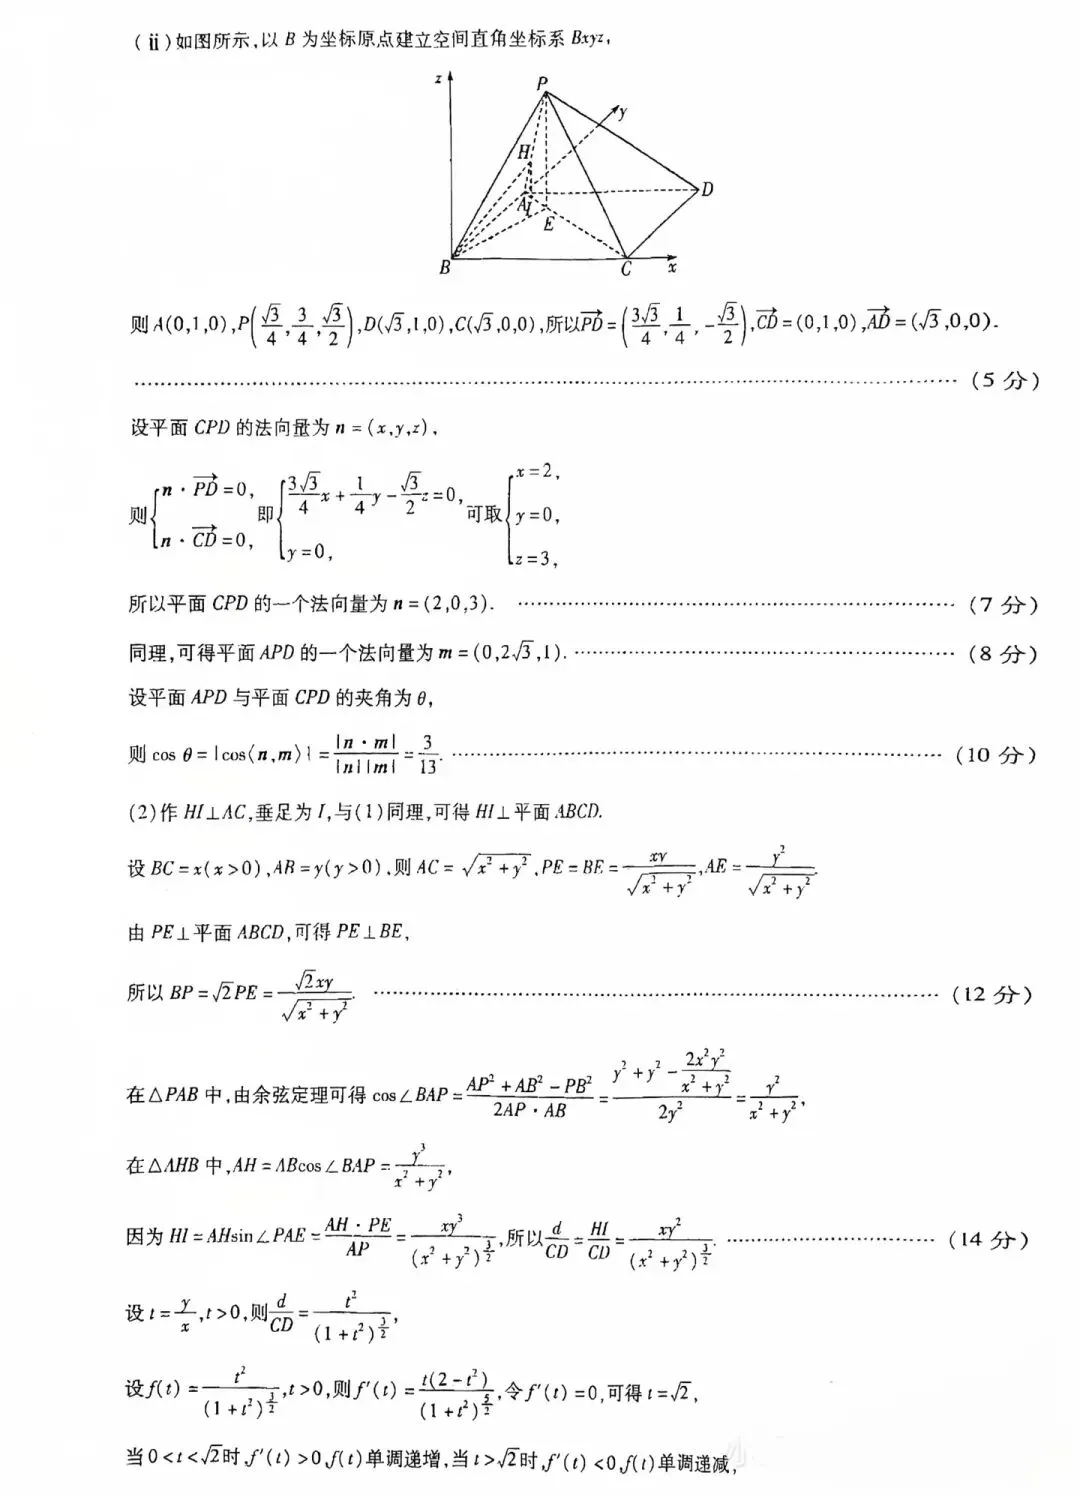 (ⅱ)如图所示,以 B 为坐标原点建立空间直角坐标系 Bxyz,
z
P
y
H
A
I
E
D
B
C
x
则 A(0,1,0),P(√3/4, 3/4, √3/2),D(√3,1,0),C(√3,0,0),所以PD→=(3√3/4, 1/4, -√3/2),CD→=(0,1,0),AD→=(√3,0,0).
…………(5 分)
设平面 CPD 的法向量为 n=(x,y,z),
则{n·PD→=0, n·CD→=0, 即{3√3/4 x+1/4 y-√3/2 z=0, y=0, 可取{x=2, y=0, z=3,
所以平面 CPD 的一个法向量为 n=(2,0,3). …………(7 分)
同理,可得平面 APD 的一个法向量为 m=(0,2√3,1). …………(8 分)
设平面 APD 与平面 CPD 的夹角为 θ,
则 cos θ=|cos⟨n,m⟩|=|n·m|/(|n||m|)=3/13. …………(10 分)
(2)作 HI⊥AC,垂足为 I,与(1)同理,可得 HI⊥平面 ABCD.
设 BC=x(x>0),AB=y(y>0),则 AC=√(x²+y²),PE=BE=xy/√(x²+y²),AE=y²/√(x²+y²).
由 PE⊥平面 ABCD,可得 PE⊥BE,
所以 BP=√2PE=√2xy/√(x²+y²). …………(12 分)
在△PAB 中,由余弦定理可得 cos∠BAP=(AP²+AB²-PB²)/(2AP·AB)=(y²+y²-2x²y²/(x²+y²))/(2y²)=y²/(x²+y²),
在△AHB 中,AH=ABcos∠BAP=y³/(x²+y²),
因为 HI=AHsin∠PAE=AH·PE/AP=xy³/(x²+y²)^(3/2),所以 d/CD=HI/CD=xy²/(x²+y²)^(3/2). …………(14 分)
设 t=y/x,t>0,则 d/CD=t²/(1+t²)^(3/2),
设 f(t)=t²/(1+t²)^(3/2),t>0,则 f′(t)=t(2-t²)/(1+t²)^(5/2),令 f′(t)=0,可得 t=√2,
当 0<t<√2时,f′(t)>0,f(t)单调递增,当 t>√2时,f′(t)<0,f(t)单调递减,